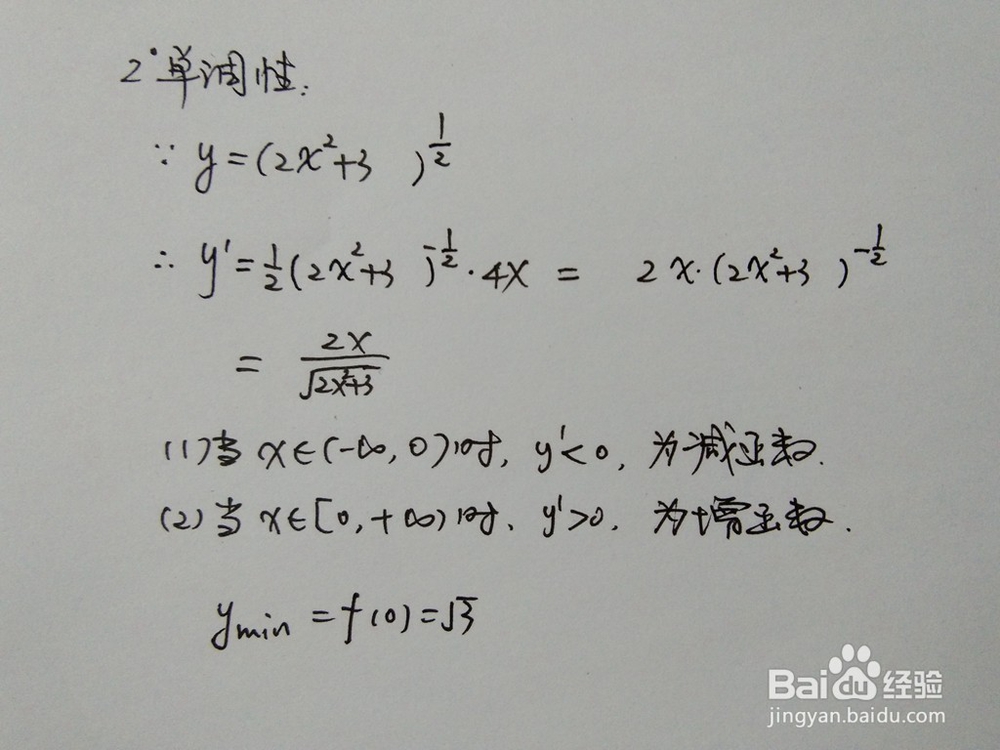 2° 单调性:
∵ y = (2x²+3 )^{1/2}
∴ y' = 1/2 (2x²+3 )^{-1/2} · 4x = 2x·(2x²+3 )^{-1/2}
= 2x/√(2x²+3)
(1) 当 x∈(-∞, 0) 时, y'<0, 为减函数.
(2) 当 x∈[0, +∞) 时, y'>0, 为增函数.
y_min = f(0) = √3
Baidu 经验
jingyan.baidu.com